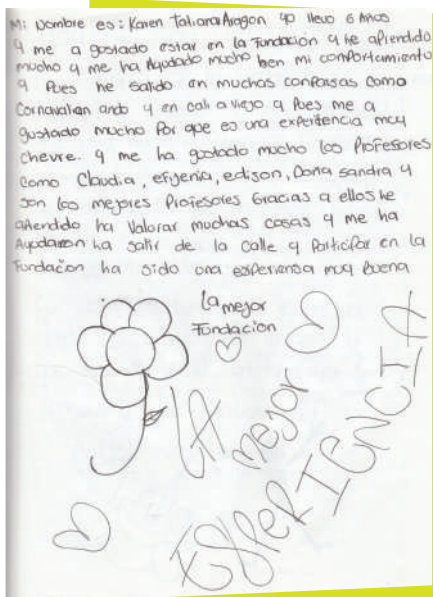 Mi Nombre es: Karen Tatiana Aragon yo llevo 6 Años
y me a gostado estar en la Fundación y he aprendido
mucho y me ha Ayudado mucho ben mi comportamiento
y Pues he salido en muchas comparsas como
Carnavalian ando y en cali a viejo y Pues me a
gustado mucho Por que es una experiencia muy
chevre. y me ha gustado mucho los Profesores
Como Claudia, efigenia, edison, Dona sandra y
son los mejores Profesores Gracias a ellos he
aprendido ha Valorar muchas cosas y me ha
Ayudaron ha salir de la calle y Participar en la
Fundación ha sido una experiensa muy buena
La mejor
Fundacion
LA
mejor
EsPeRIENCIA